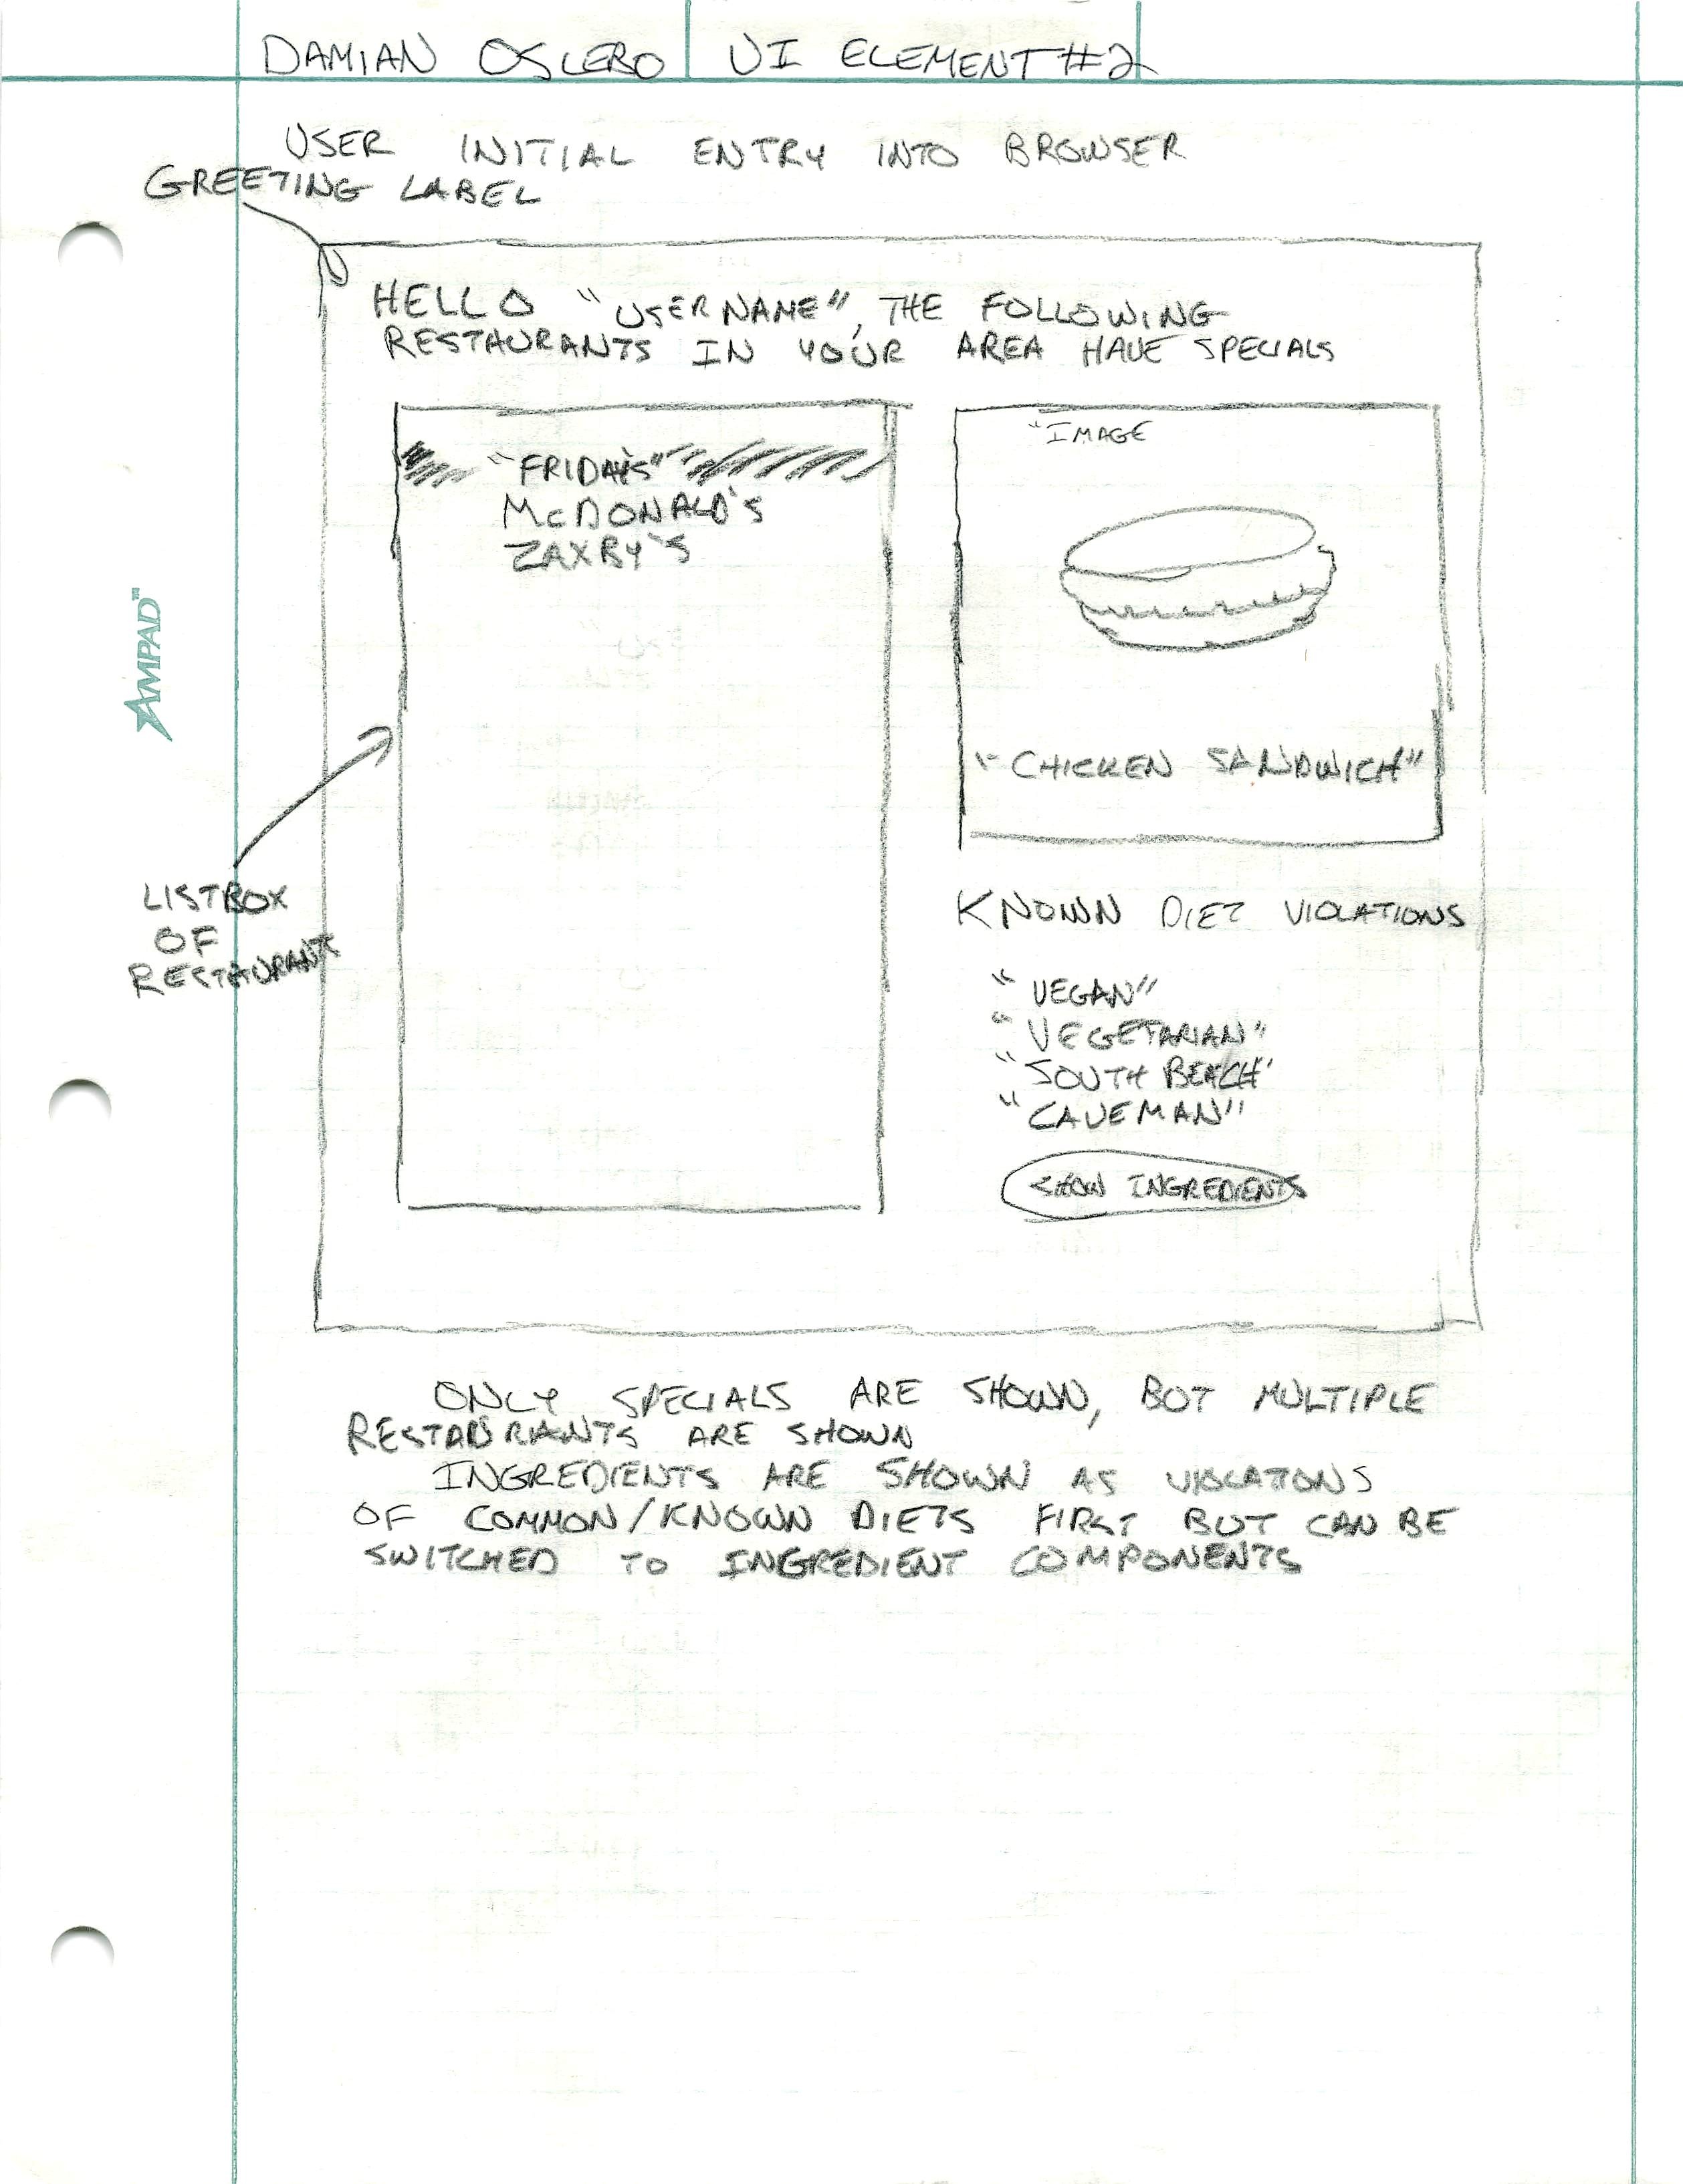 DAMIAN OSLEBO UI ELEMENT #2
USER INITIAL ENTRY INTO BROWSER
GREETING LABEL
HELLO "USERNAME", THE FOLLOWING
RESTAURANTS IN YOUR AREA HAVE SPECIALS
"FRIDAYS"
McDONALD'S
ZAXBY'S
"IMAGE
"CHICKEN SANDWICH"
AMPAD™
LISTBOX
OF
RESTAURANTS
KNOWN DIET VIOLATIONS
"VEGAN"
"VEGETARIAN"
"SOUTH BEACH"
"CAVEMAN"
SHOW INGREDIENTS
ONLY SPECIALS ARE SHOWN, BUT MULTIPLE
RESTAURANTS ARE SHOWN
INGREDIENTS ARE SHOWN AS VIOLATIONS
OF COMMON/KNOWN DIETS FIRST BUT CAN BE
SWITCHED TO INGREDIENT COMPONENTS